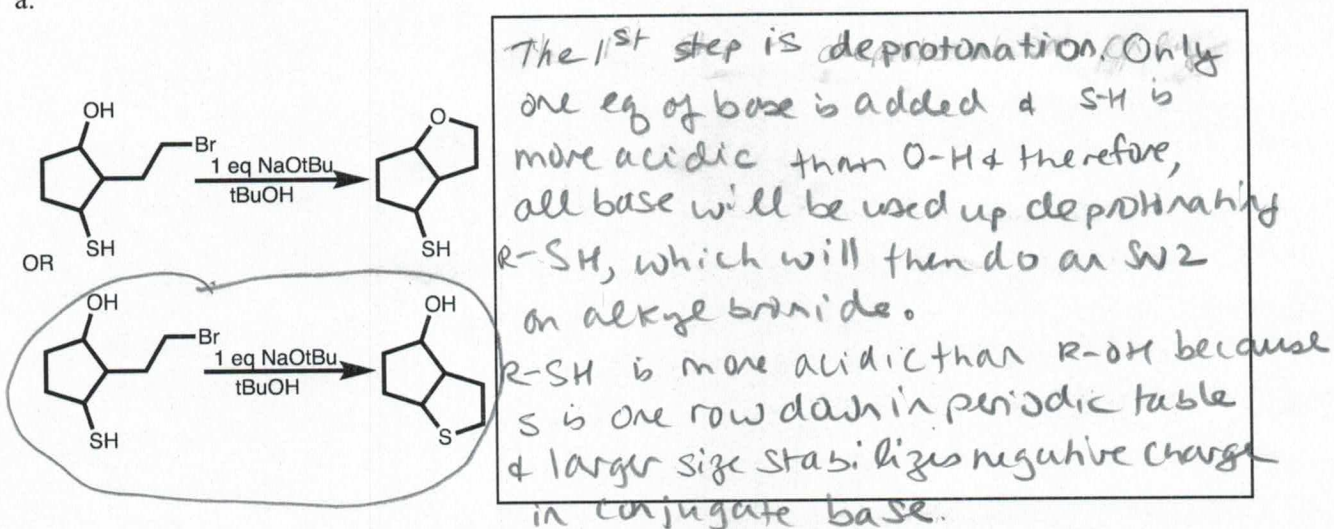 a.
OH
Br
1 eq NaOtBu
tBuOH
SH
O
SH
OR
OH
Br
1 eq NaOtBu
tBuOH
SH
OH
S
The 1st step is deprotonation. Only
one eq of base is added & S-H is
more acidic than O-H & therefore,
all base will be used up deprotonating
R-SH, which will then do an SN2
on alkyl bromide.
R-SH is more acidic than R-OH because
S is one row down in periodic table
& larger size stabilizes negative charge
in conjugate base.